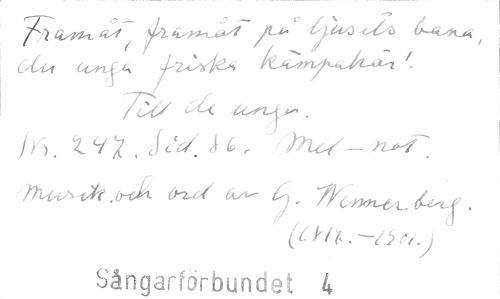 Framåt, framåt på ljusets bana,
du unga friska kämpahär!
Till de unga.
Nr. 247. Sid. 86. Mel-not.
Musik och ord av G. Wennerberg.
(1817.-1901.)
Sångarförbundet 4